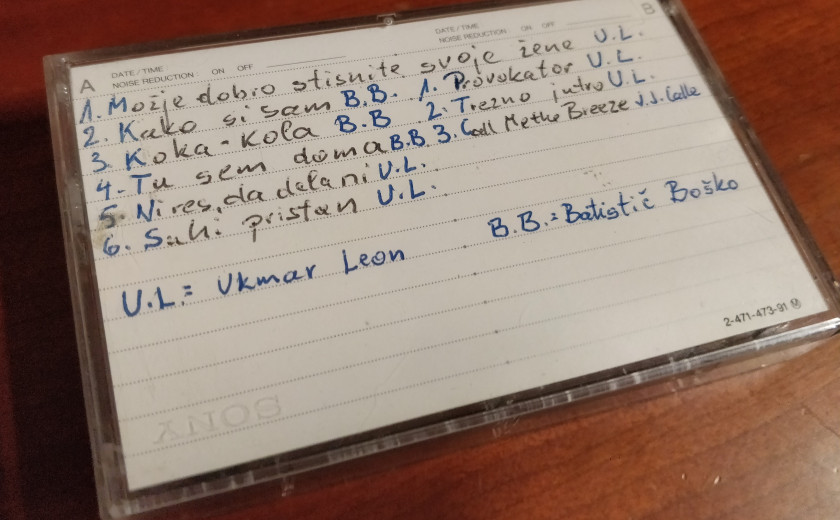 A DATE / TIME
NOISE REDUCTION ON OFF
DATE / TIME B
NOISE REDUCTION ON OFF
1. Možje dobro stisnite svoje žene U.L.
2. Kako si sam B.B.
3. Koka-Kola B.B
4. Tu sem doma B.B
5. Ni res, da dela ni U.L.
6. Suhi pristan U.L.
1. Provokator U.L.
2. Trezno jutro U.L.
3. Call Me the Breeze J.J. Calle
U.L. = Ukmar Leon
B.B. = Batistič Boško
2-471-473-91
SONY